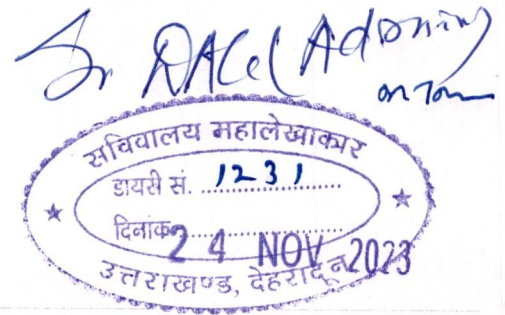 Sr DAG (Admin)
on Tour
सचिवालय महालेखाकार
डायरी सं. 1231
दिनांक 24 NOV 2023
उत्तराखण्ड, देहरादून